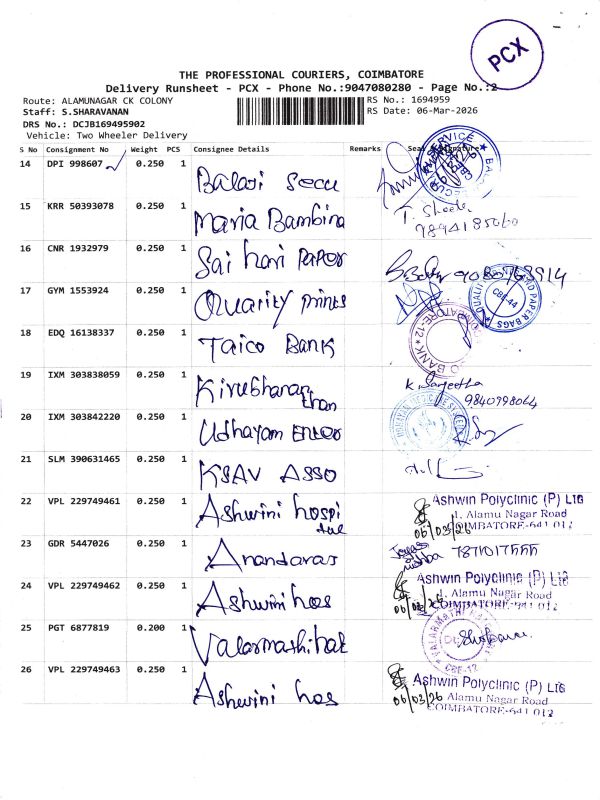 PCX
THE PROFESSIONAL COURIERS, COIMBATORE
Delivery Runsheet - PCX - Phone No.:9047080280 - Page No.:2
Route: ALAMUNAGAR CK COLONY
RS No.: 1694959
Staff: S.SHARAVANAN
RS Date: 06-Mar-2026
DRS No.: DCJB169495902
Vehicle: Two Wheeler Delivery
S No Consignment No Weight PCS Consignee Details Remarks
14 DPI 998607 0.250 1 Balaji Secu
15 KRR 50393078 0.250 1 Maria Bambina T. Sheela
9894185060
16 CNR 1932979 0.250 1 Sai hari Paper
17 GYM 1553924 0.250 1 Quarity prints
CBE-44
PAPER BAGS
18 EDQ 16138337 0.250 1 Taico Bank
19 IXM 303838059 0.250 1 Kirubharan
than
K Sangeetha
9840998064
20 IXM 303842220 0.250 1 Udhayam Enter
21 SLM 390631465 0.250 1 KSAV ASSO
22 VPL 229749461 0.250 1 Ashwini hospi
tal
06/03/26
Ashwin Polyclinic (P) Ltd
1, Alamu Nagar Road
COIMBATORE-641 012
23 GDR 5447026 0.250 1 Anandaraj
24 VPL 229749462 0.250 1 Ashwini hos
Ashwin Polyclinic (P) Ltd
1, Alamu Nagar Road
COIMBATORE-641 012
25 PGT 6877819 0.200 1 Valarmathi hat
CBE-12
26 VPL 229749463 0.250 1 Ashwini hos
06/03/26
Ashwin Polyclinic (P) Ltd
Alamu Nagar Road
COIMBATORE-641 012